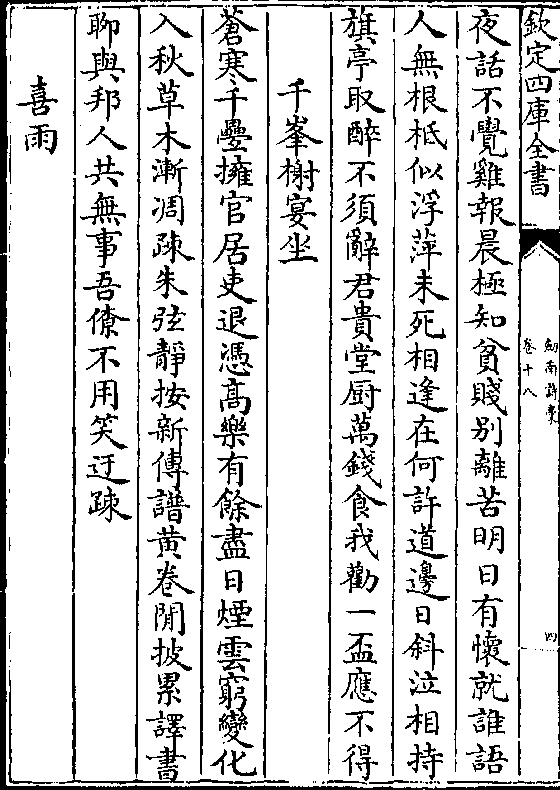 欽定四庫全書
劒南詩藁
卷十八
四
夜話不覺雞報晨極知貧賤别離苦明日有懷就誰語
人無根柢似浮萍未死相逢在何許道邊日斜泣相持
旗亭取醉不須辭君貴堂厨萬錢食我勸一盃應不得
千峯榭宴坐
蒼寒千疊擁官居吏退憑髙樂有餘盡日煙雲窮變化
入秋草木漸凋疎朱弦靜按新傳譜黄卷閒披累譯書
聊與邦人共無事吾僚不用笑迂疎
喜雨